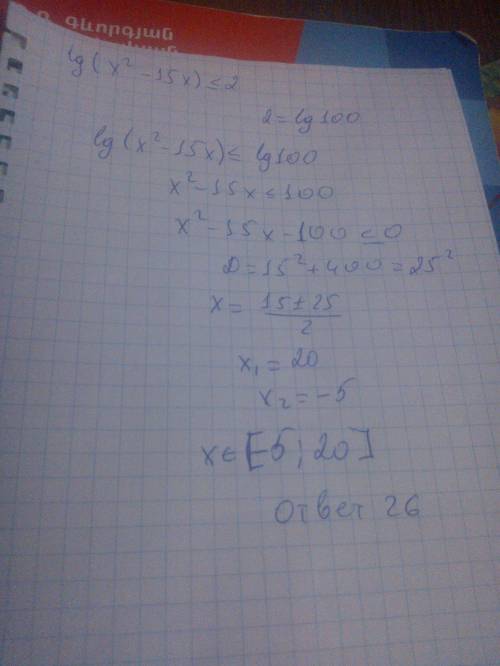 Գևորգյան
lg(x² - 15x) ≤ 2
2 = lg100
lg(x² - 15x) ≤ lg100
x² - 15x ≤ 100
x² - 15x - 100 ≤ 0
D = 15² + 400 = 25²
x = (15 ± 25)/2
x₁ = 20
x₂ = -5
x ∈ [-5; 20]
Ответ 26